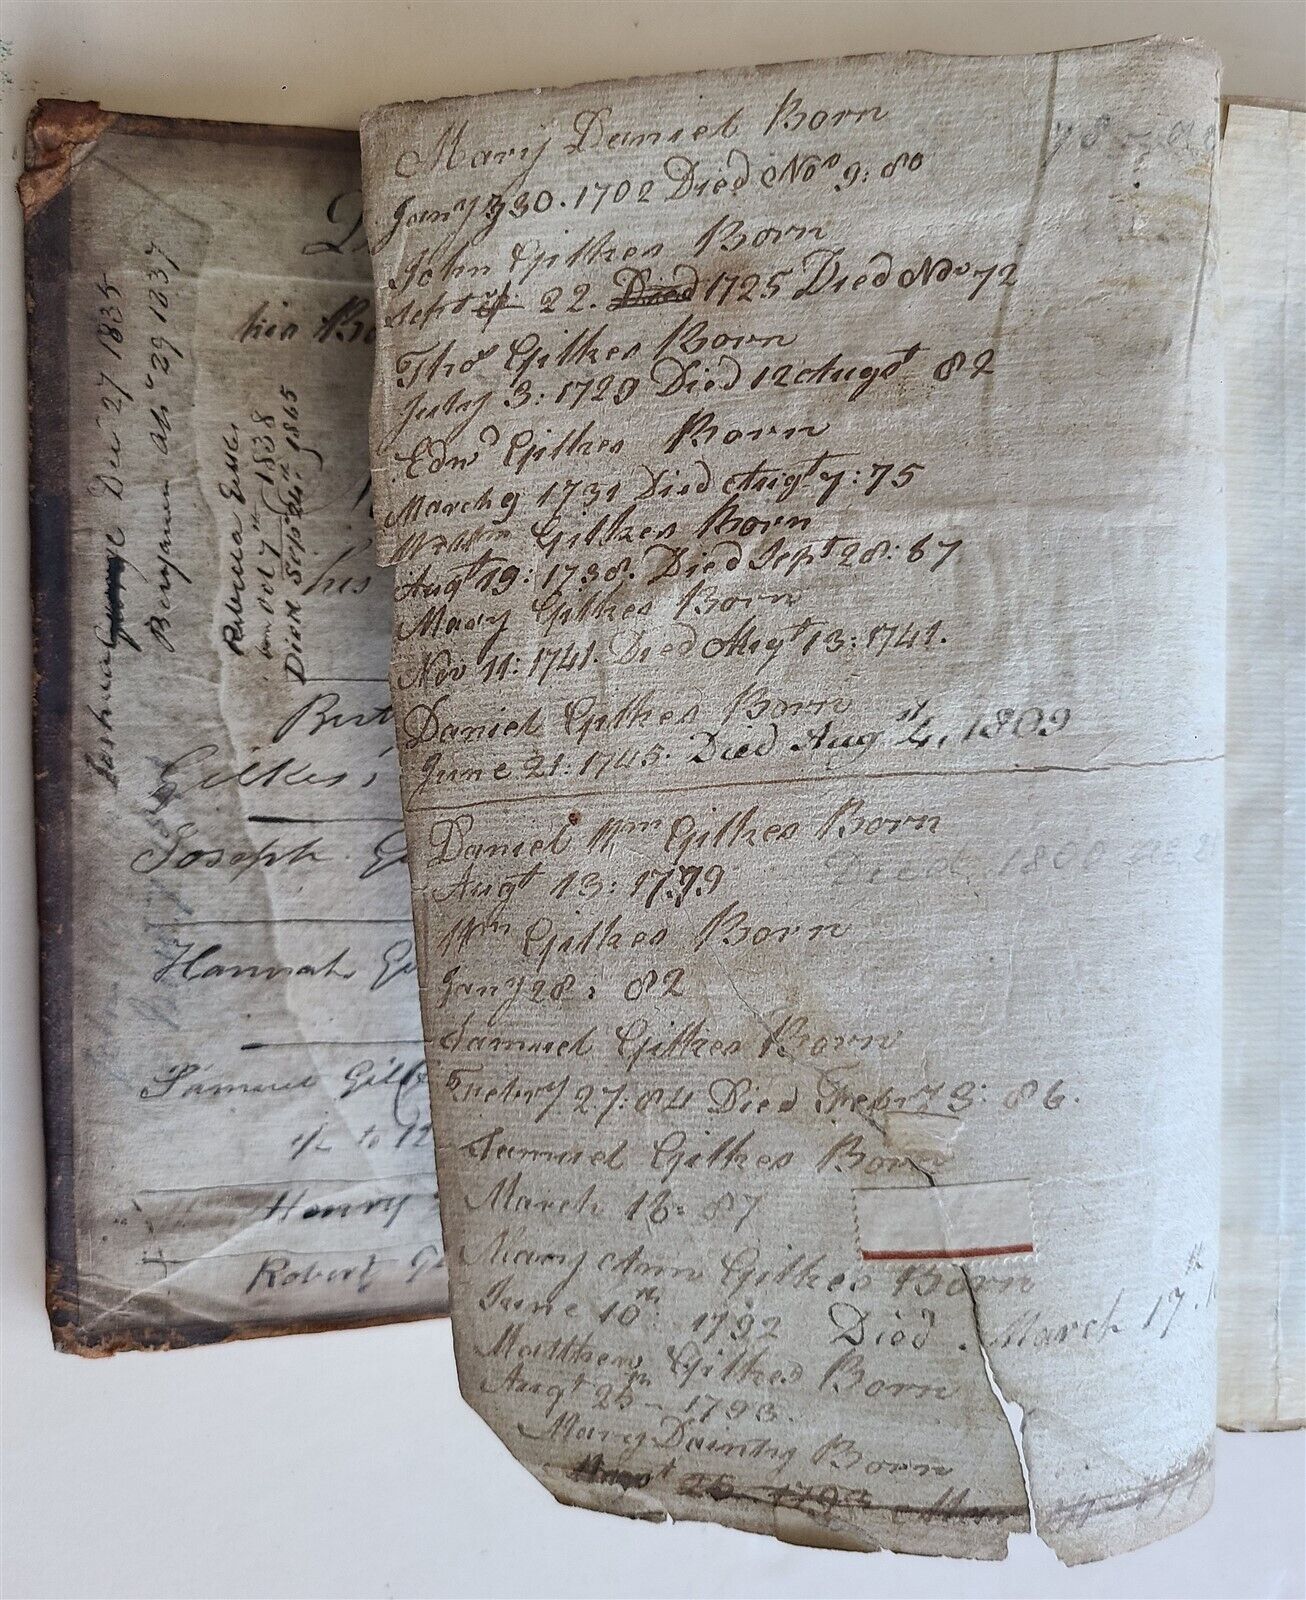 Mary Daniel Born
Jany 30. 1702 Died Nov 9: 80
John Gilkes Born
Sept 22. Died 1725 Died Nov 72
Thos Gilkes Born
July 3: 1729 Died 12 Augst 82
Edwd Gilkes Born
March 9 1731 Died Augt 7: 75
Willm Gilkes Born
Augt 19: 1738. Died Sept 28: 67
Mary Gilkes Born
Nov 11: 1741. Died Augt 13: 1741.
Daniel Gilkes Born
June 21: 1745. Died Aug st 4, 1809
Daniel Wm Gilkes Born
Augt 13: 1779
Died 180
Wm Gilkes Born
Jany 28: 82
Samuel Gilkes Born
27: 84 Died Febry 3: 86.
Samuel Gilkes Born
March 18: 87
Mary Ann Gilkes Born
June 10th 1792 Died March 17th
Matthew Gilkes Born
Augt 25th - 1793.
Mary Daintry Born
Augst 25 1793
Dec 27 1835
Benjamin 29 1837
Rebecca
born Oct 7th 1838
Died Sept 1865
his Bo
his
Birt
Gilkes
Joseph G
Hannah Gi
Samuel Gil
1/2 to 12
Henry
Robert G